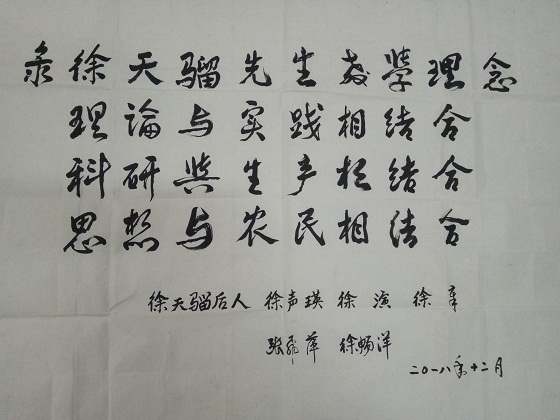 录徐天骝先生教学理念
理论与实践相结合
科研与生产相结合
思想与农民相结合
徐天骝后人 徐声瑛 徐演 徐
张飞萍 徐畅洋
二〇一八年十二月